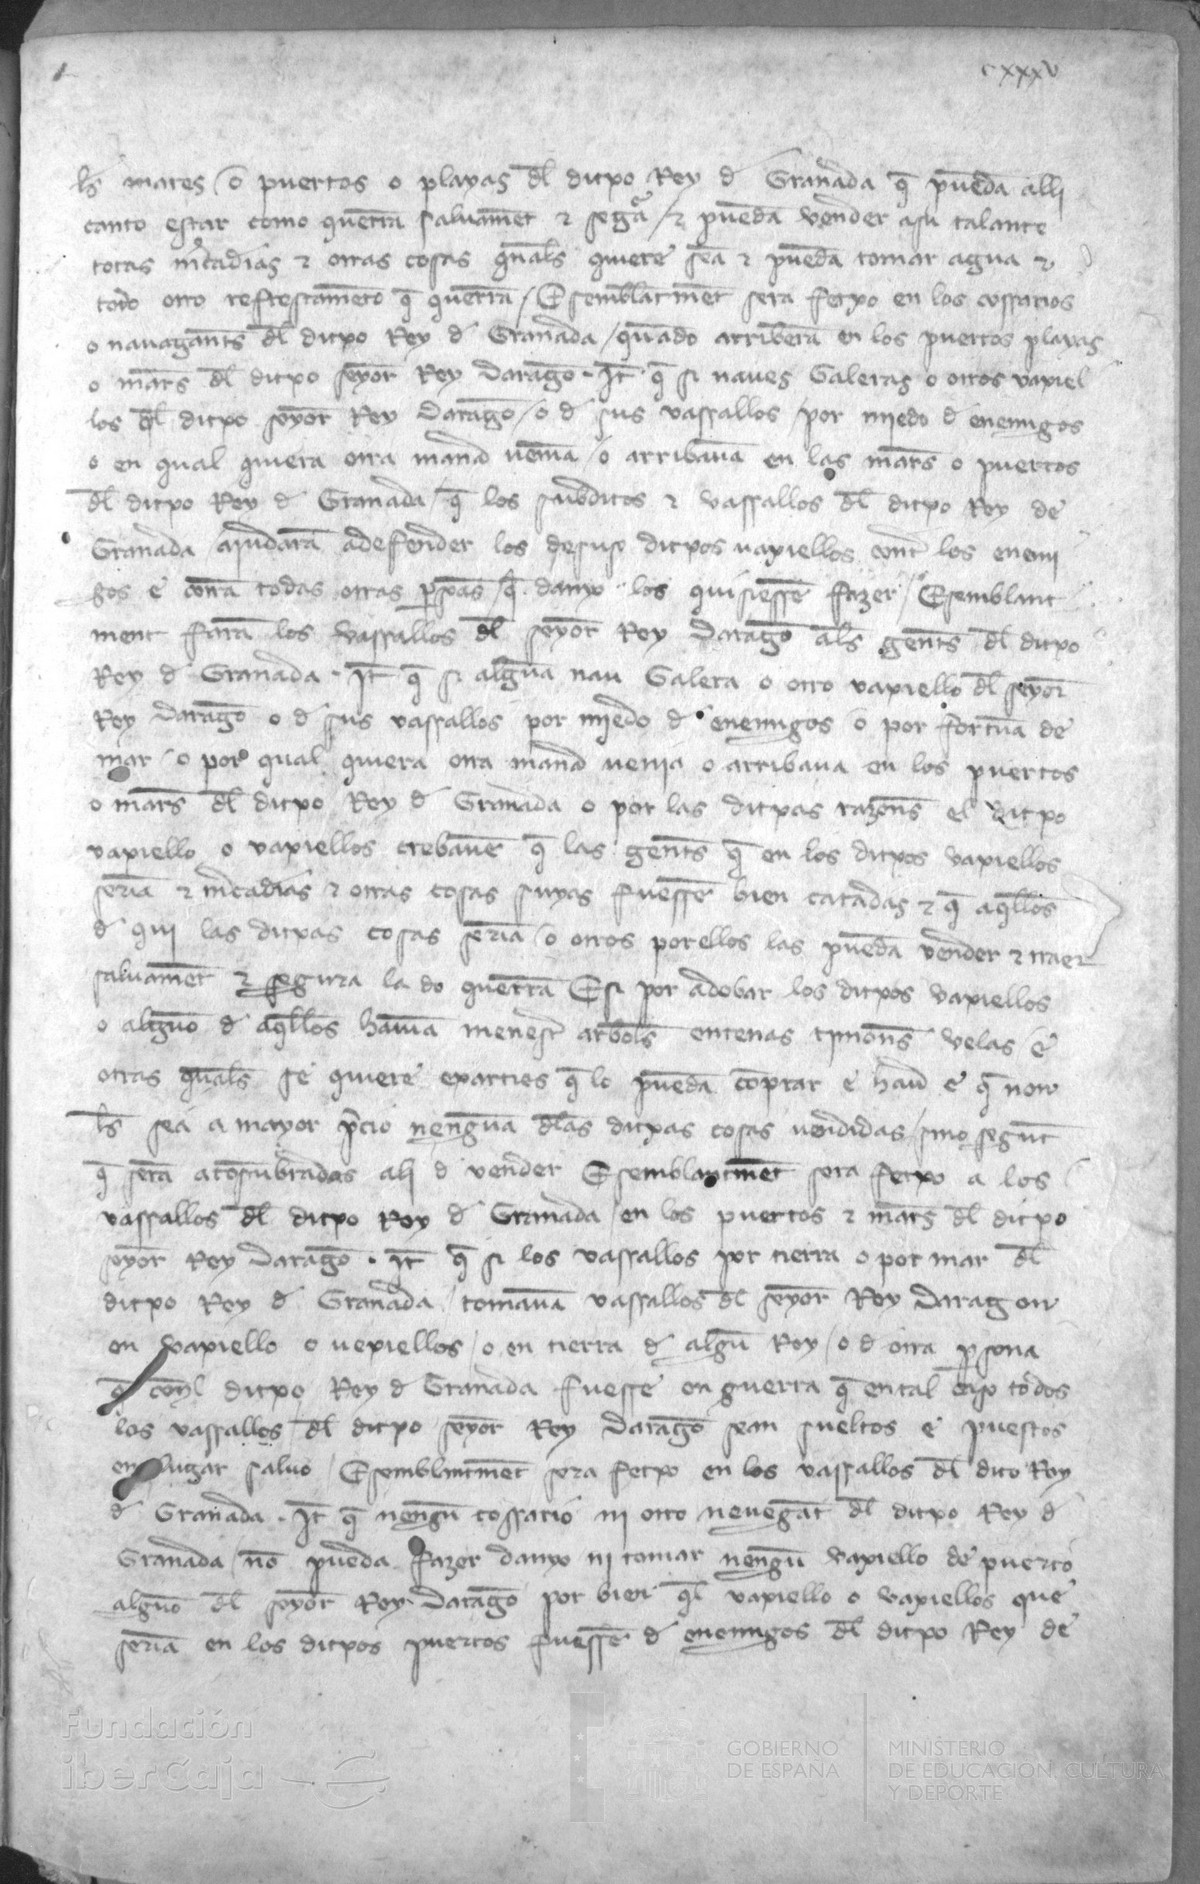 cxxxv
ls mares / o puertos o playas dl ditxo Rey d Granada q pueda alli
tanto estar como querra saluament & segra / & pueda vender asu talante
totas mcadias & otras cosas quals quiere sea & pueda tomar agua &
todo otro refrescameto q querra / Esemblarment sera fetxo en los cossarios
o nauagants dl ditxo Rey d Granada / quado arribera en los puertos playas
o mars dl ditxo seyor Rey Darago . It q si naues Galeras o otros vaxiel
los dl ditxo seyor Rey Darago / o d sus vassallos / por miedo d enemigos
o en qual quiera otra manа venia / o arribaua en las mars o puertos
dl ditxo Rey d Granada / q los subditos & vassallos dl ditxo Rey de
Granada ajudara adefender los desuso ditxos vaxiellos cont los enemi
gos e cotra todas otras psonas / q danyo los quisiesse fazer / Esemblant
ment fara los vassallos dl seyor Rey Darago als gents dl ditxo
Rey d Granada . It q si alguna nau Galera o otro vaxiello dl seyor
Rey Darago o d sus vassallos por miedo d enemigos o por fortuna de
mar / o por qual quiera otra mana venia o arribaua en los puertos
o mars dl ditxo Rey d Granada o por las ditxas razons el ditxo
vaxiello o vaxiellos trebaue q las gents q en los ditxos vaxiellos
seria & mcadias & otras cosas suyas fuesse bien catadas & q aqllos
d qui las ditxas cosas seria / o otros porellos las pueda vender & traer
saluament & segura la do querra Esi por adobar los ditxos vaxiellos
o alguno d aqllos hauia menest arbols entenas timons velas / e
otras quals se quiere exarties q lo pueda coprar e hau e q non
ls sea a mayor pcio nenguna dlas ditxas cosas vendidas / sino segunt
q sera acostubradas alli d vender Esemblantment sera fetxo a los
vassallos dl ditxo Rey d Granada / en los puertos & mars dl ditxo
seyor Rey Darago . It q si los vassallos por tierra o por mar dl
ditxo Rey d Granada / tomaua vassallos dl seyor Rey Daragon
en vaxiello o vexiellos / o en tierra d algu Rey / o d otra psona
q conl ditxo Rey d Granada fuesse en guerra q en tal caso todos
los vassallos dl ditxo seyor Rey Darago sean sueltos e puestos
en lugar saluo / Esemblantment sera fetxo en los vassallos dl dito Rey
d Granada . It q nengu cossario ni otro nauegat dl ditxo Rey d
Granada / no pueda fazer danyo ni tomar nengu vaxiello de puerto
alguno dl seyor Rey Darago por bien ql vaxiello o vaxiellos que
seria en los ditxos puertos fuesse d enemigos dl ditxo Rey de
Fundación
iberCaja
GOBIERNO
DE ESPAÑA
MINISTERIO
DE EDUCACIÓN, CULTURA
Y DEPORTE